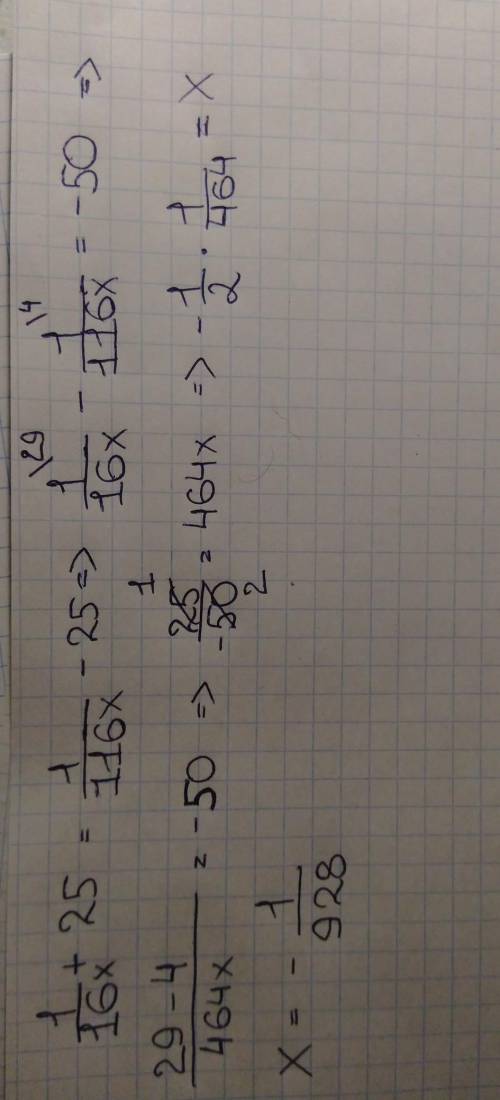 1/16x + 25 = 1/116x - 25 => 1\29/16x - 1\4/116x = -50 =>
29-4/464x = -50 => 25 1/-50 2 = 464x => -1/2 · 1/464 = x
x = -1/928